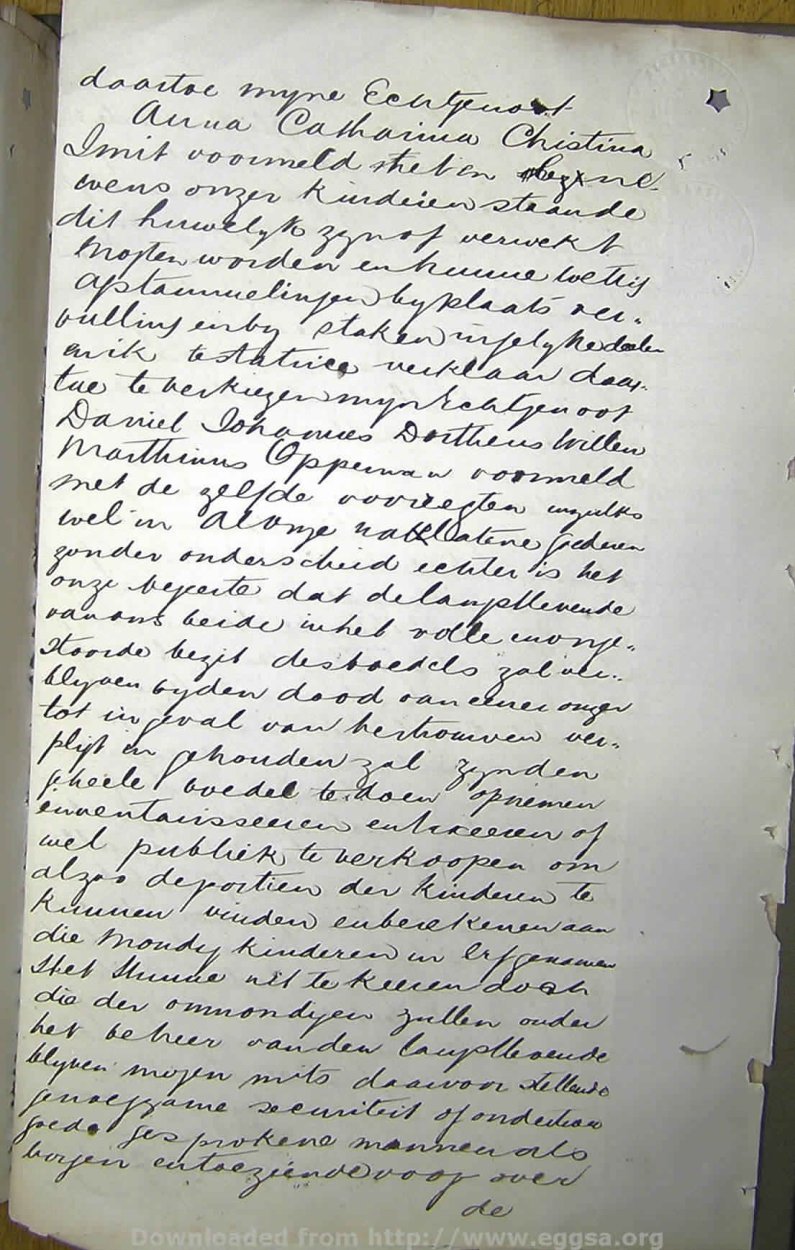 daartoe myne Echtgenoot
Anna Catharina Christina
Smit voormeld met en ne
vens onzer kinderen staande
dit huwelyk zyn of verwekt
mogten worden en hunne wettig
afstammelingen by plaats ver„
vulling en by staken in gelyke deelen
en ik testatrice verklaar daar„
toe te verkiezen myn Echtgenoot
Daniel Johannes Dortheus Willem
Marthinus Opperman voormeld
met de zelfde voorregten
wel in al onze nalatene goederen
zonder onderscheid echter is het
onze begeerte dat de langstlevende
van ons beide in het volle en onge„
stoorde bezit des boedels zal ver„
blyven by den dood van eener onzer
tot in geval van hertrouwen ver„
pligt en gehouden zal zyn den
geheele boedel te doen opnemen
inventarisseeren en taxeeren of
wel publiek te verkoopen om
alzoo de portien der kinderen te
kunnen vinden en berekenen aan
die mondig kinderen en Erfgenamen
het hunne uit te keeren doch
die der onmondigen zullen onder
het beheer van den langstlevende
blyven mogen mits daarvoor stellende
genoegzame securiteit of
goede gesprokene mannen als
borgen en toeziende voog over
de
Downloaded from http://www.eggsa.org